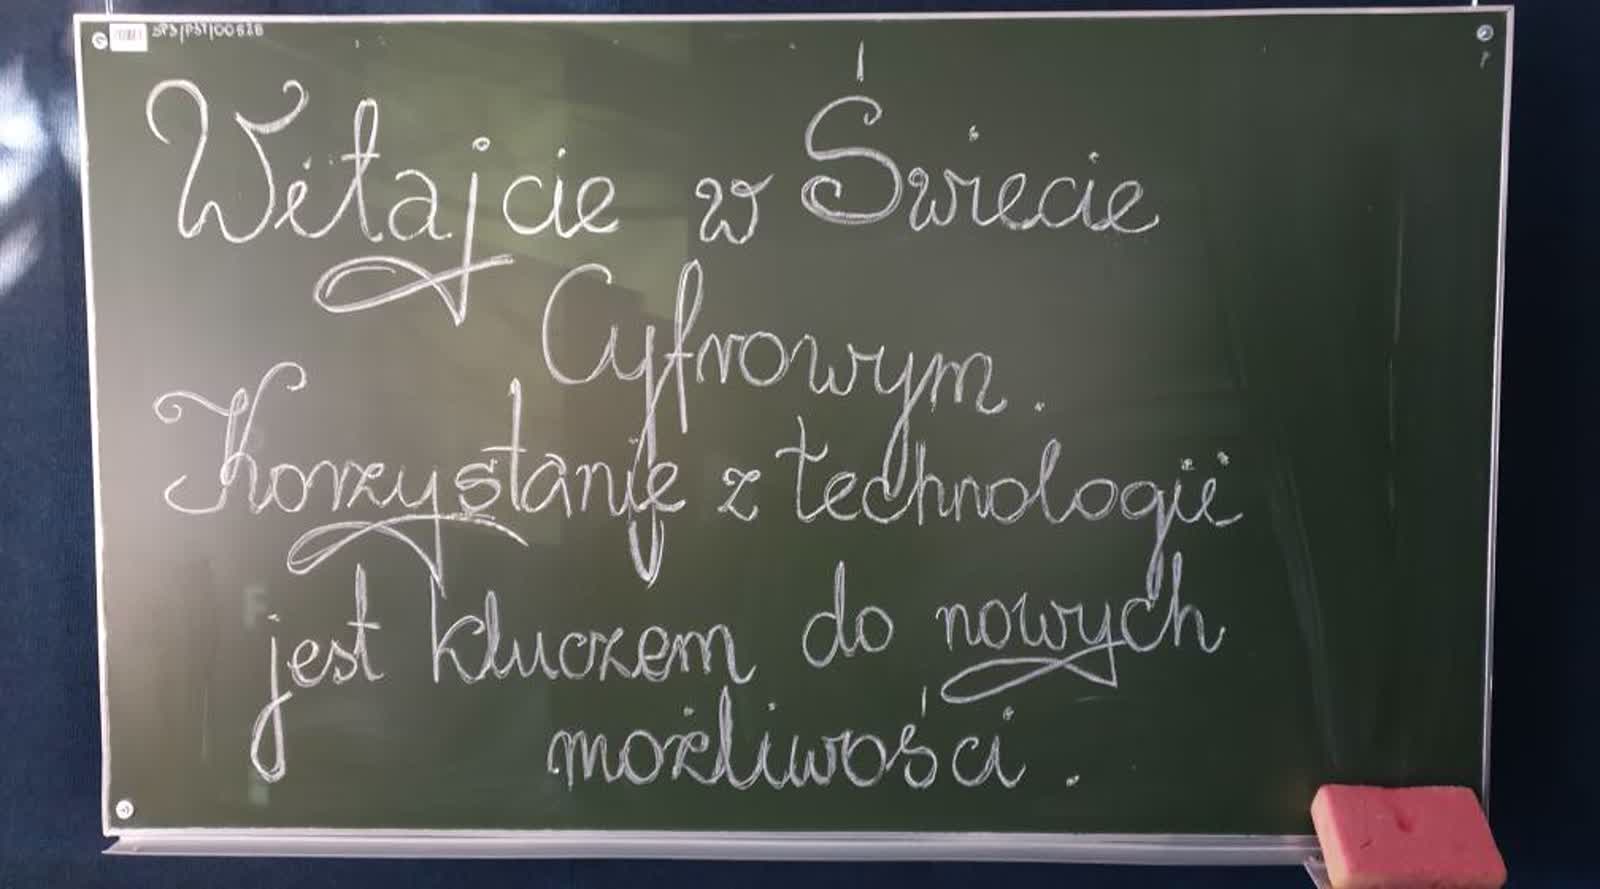 SP3/PST/00626
Witajcie w Świecie
Cyfrowym.
Korzystanie z technologii
jest kluczem do nowych
możliwości.